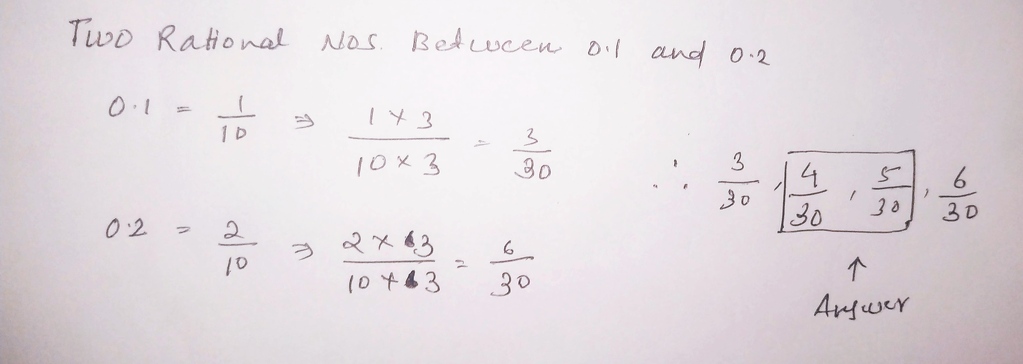 Two Rational Nos. Between 0.1 and 0.2
0.1 = 1/10 ⇒ (1 × 3)/(10 × 3) = 3/30
0.2 = 2/10 ⇒ (2 × 3)/(10 × 3) = 6/30
∴ 3/30, 4/30, 5/30, 6/30
↑
Answer